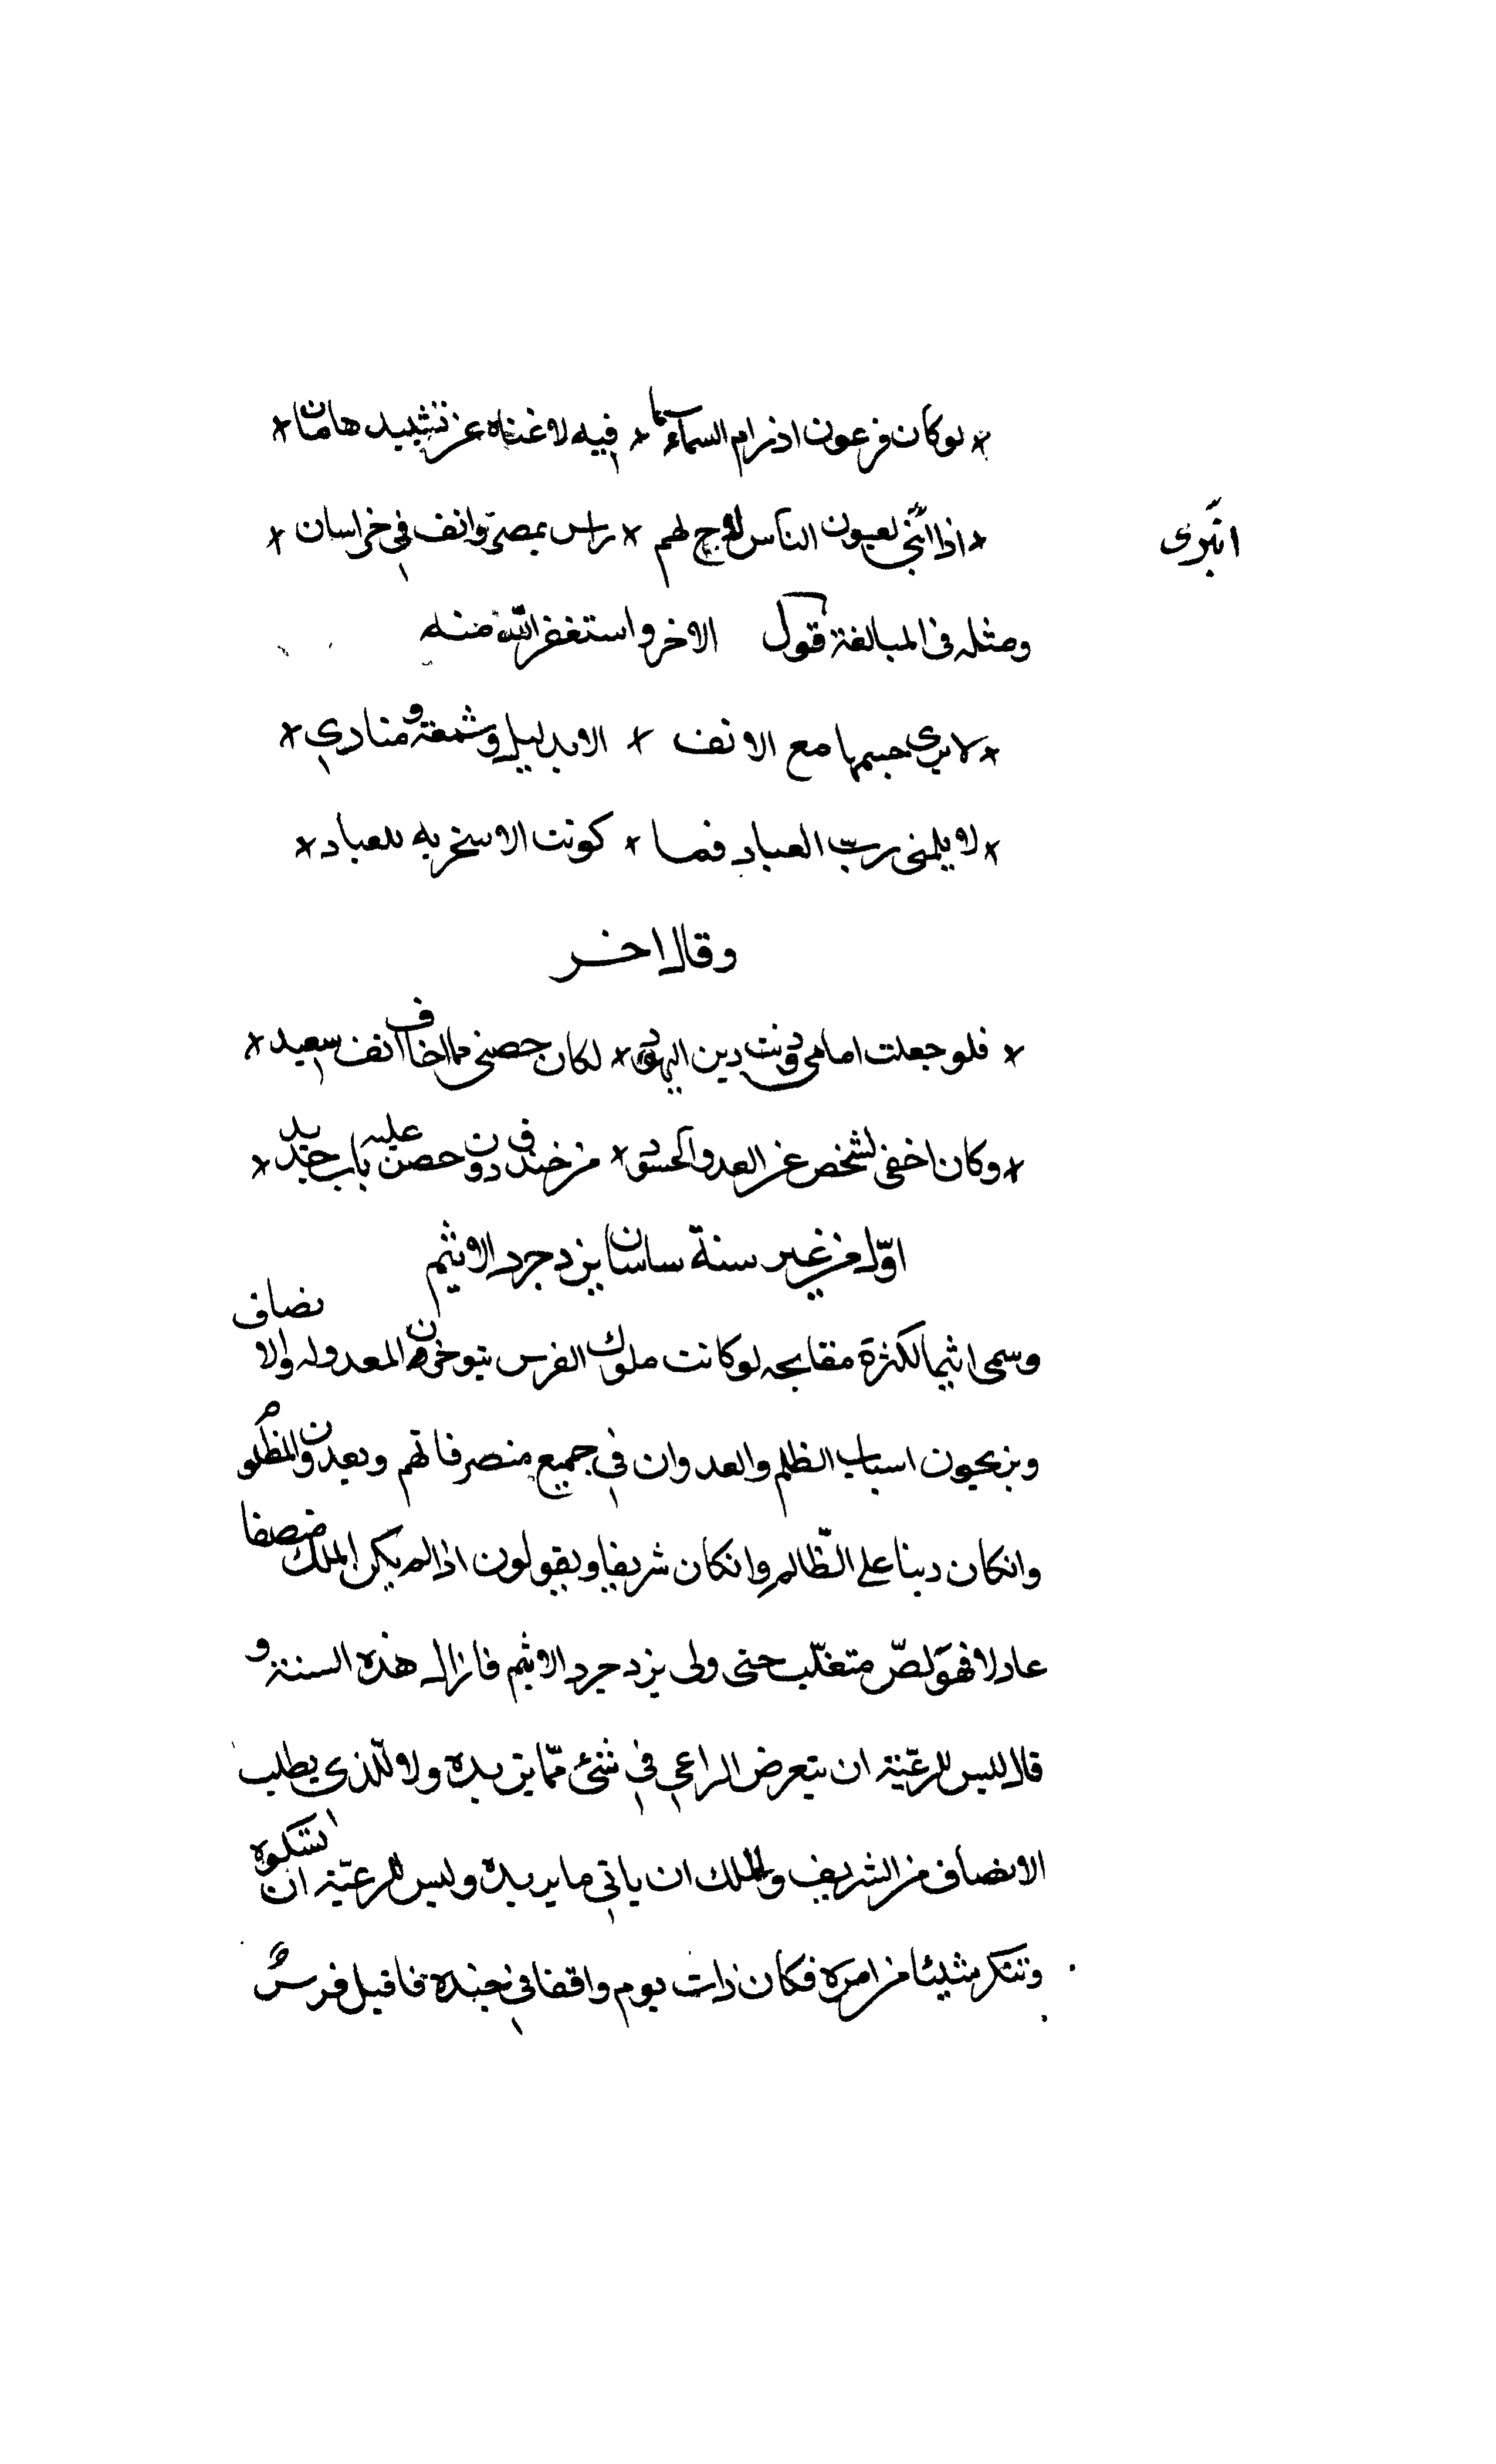 * لوكان فرعون اذ رام السماء بها * فيه لاغناه عن تشييد هامان *
* اذا انبرى لعيون الناس لاح لهم * راس بمصر وانف في خراسان *
انبرى
ومثله في المبالغة قول الاخر واستغفر الله منه
* لا يرى جسمها مع الانف * الا بدليل وشمعة ومنادي *
* لا يلمنى رب العباد فما * كونت الا سخرية للعباد *
وقال اخر
* فلو جعلت امامى ودنت دين اليهود * لكان حصنى مما اخاف انف سعيد *
* وكان اخفى لشخص عن العدو الحسود * من خندق دون حصن عليه باب حديد *
اول من غير سنة ساسان يزدجرد الاثيم
وسمى اثيما لكثرة مقابحه لو كانت ملوك الفرس يتوخون المعدوله والانصاف
ويزيحون اسباب الظلم والعدوان في جميع متصرفاتهم ويعدون المظلوم
وانكان دينا على الظالم وانكان شريفا ويقولون اذا لم يكن الملك منصفا
عادلا فهو لص متغلب حتى ولى يزدجرد الاثيم فازال هذه السنة و
قال ليس للرعية ان يتعرض الراعي في شئ مما يريده ولا للذى يطلب
الانصاف من الشريف والملك ان ياتي ما يريده وليس للرعية ان تشكوه
وتنكر شيئا من امره فكان ذات يوم واقفا في جنده فاقبل فرس